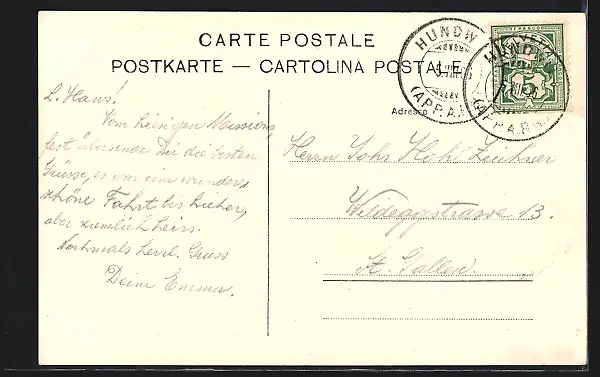 CARTE POSTALE
POSTKARTE — CARTOLINA POSTALE
HUNDW
(APP. A.
HUNDW
(APP. A. RH
FRANCO
5
Adresse
L. Hans!
Vom hiesigen Missions
fest übersende Dir die besten
Grüsse, es war eine wunder
schöne Fahrt bis hieher,
aber ziemlich heiss.
Nochmals herzl. Gruss
Deine Emma.
Herrn Johs. Hohl Zeichner
Wildeggstrasse 13.
St. Gallen.